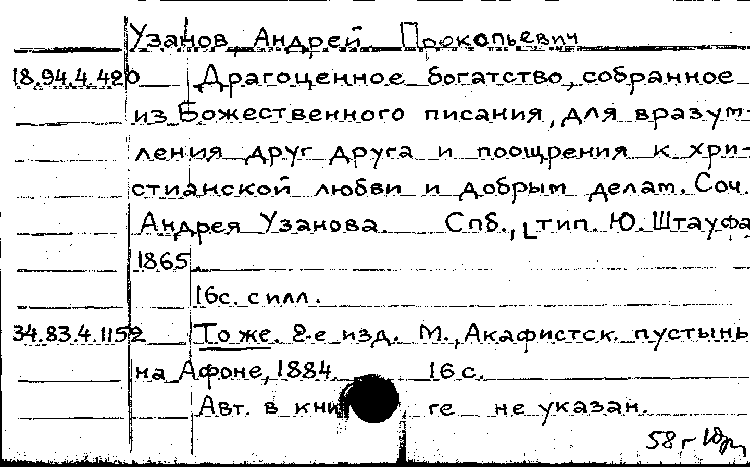 Узанов, Андрей Прокопьевич
18.94.4.420 Драгоценное богатство, собранное
из Божественного писания, для вразум-
ления друг друга и поощрения к хри-
стианской любви и добрым делам. Соч.
Андрея Узанова. Спб., тип. Ю. Штауфа
1865.
16с. с илл.
34.83.4.1152 То же. 2-е изд. М., Акафистск. пустынь
на Афоне, 1884. 16 с.
Авт. в книге не указан.
58 г